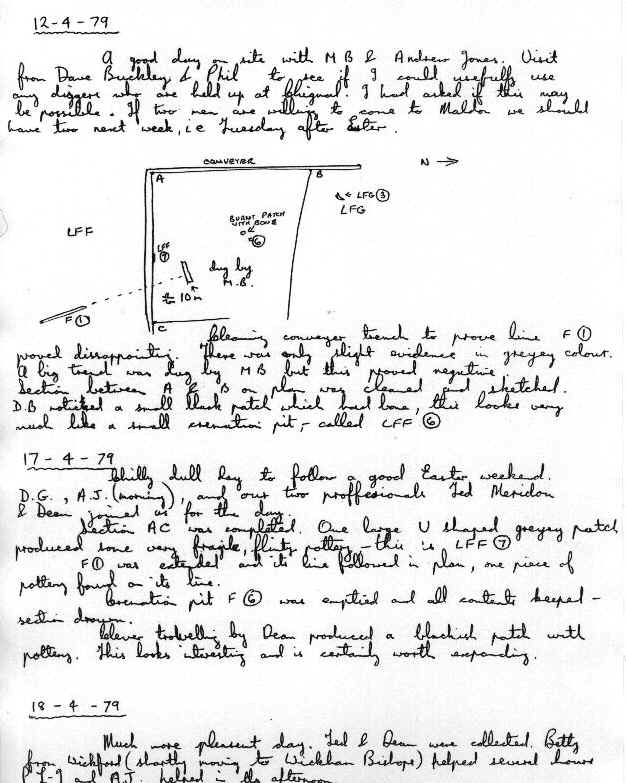 12-4-79
A good day on site with MB & Andrew Jones. Visit
from Dave Buckley & Phil to see if I could usefully use
any diggers who are held up at Chignal. I had asked if this may
be possible. If two men are willing to come to Maldon we should
have two next week, i.e Tuesday after Ester.
CONVEYER
N →
A
B
LFG ③
LFG
BURNT PATCH
WITH BONE
⑥
LFF
LFF
⑦
dug by
M.B.
10m
F ①
C
Cleaning conveyer trench to prove line F ①
proved dissappointing. There was only slight evidence in greyey colour.
A big trench was dug by MB but this proved negative.
Section between A & B on plan was cleaned and sketched.
D.B noticed a small black patch which had bone, this looks very
much like a small cremation pit, - called LFF ⑥
17-4-79
Chilly dull day to follow a good Easter weekend.
D.G., A.J. (morning), and our two proffesionals Ted Meridon
& Dean joined us for the day.
Section AC was completed. One large U shaped greyey patch
produced some very fragile, flinty pottery - this is LFF ⑦
F ① was extended and its line followed in plan, one piece of
pottery found on its line.
Cremation pit F ⑥ was emptied and all contents keeped -
section drawn.
Clever trowelling by Dean produced a blackish patch with
pottery. This looks interesting and is certainly worth expanding.
18-4-79
Much more pleasent day. Ted & Dean were collected. Betty
from Wickford (shortly moving to Wickham Bishops) helped several hours
and A.J. helped in the afternoon